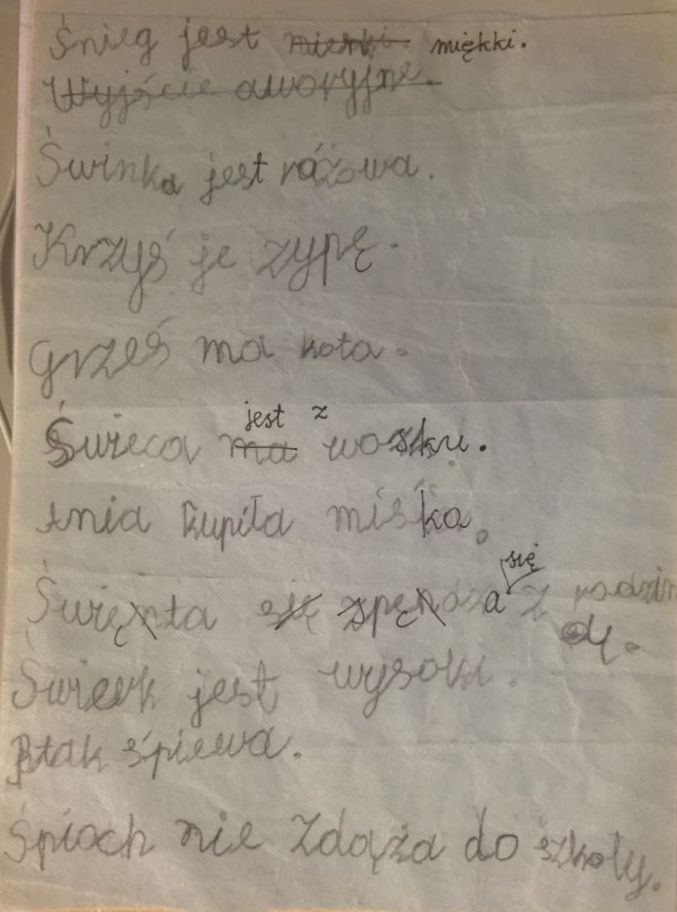 Śnieg jest miękki.
Wyjście aworyjne.
Świnka jest rózowa.
Krzyś je zypę.
Grześ ma kota.
jest z
Świeca ma wosku.
Ania kupiła miśka.
się
Święnta się spęndza z rodzin
ą.
Świerk jest wysoki.
Ptak śpiewa.
Śpioch nie zdąża do szkoły.